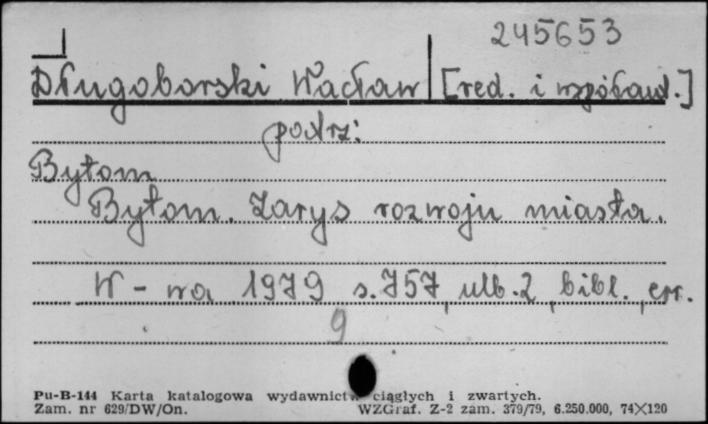 245653
Długoborski Wacław [red. i współaut.]
patrz:
Bytom
Bytom. Zarys rozwoju miasta.
W-wa 1979 s. 757, ulb. 2, bibl., err.
9
Pu-B-144 Karta katalogowa wydawnictw ciągłych i zwartych.
Zam. nr 629/DW/On. WZGraf. Z-2 zam. 379/79, 6.250.000, 74×120